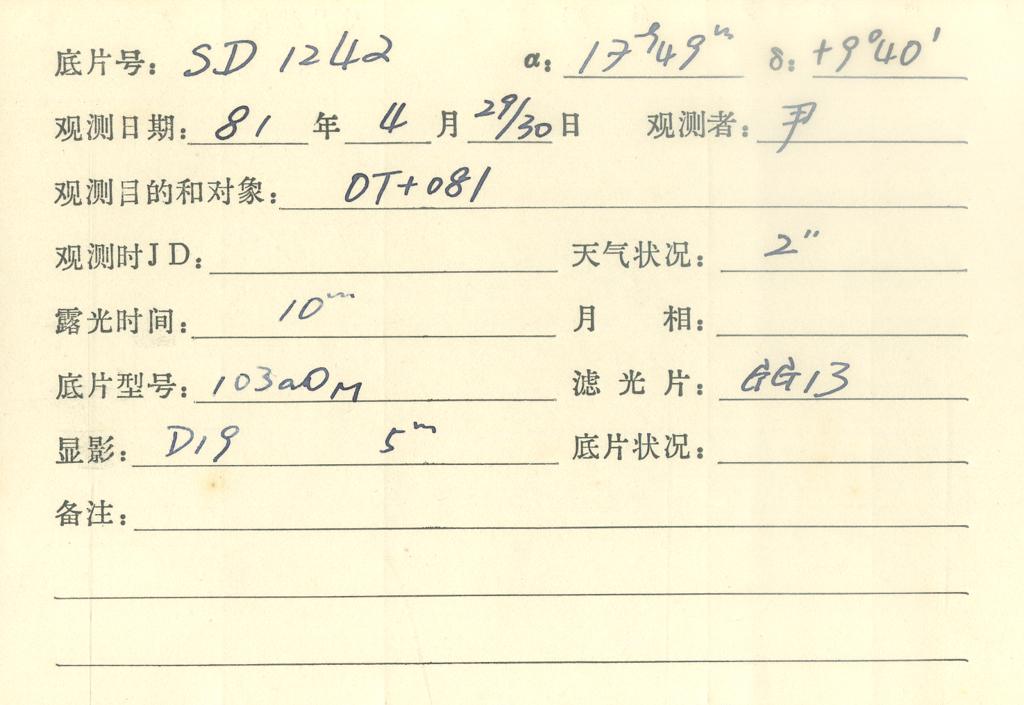 底片号: SD 1242 α: 17ʰ49ᵐ δ: +9°40′
观测日期: 81 年 4 月 29/30 日 观测者: 尹
观测目的和对象: OT+081
观测时JD: 天气状况: 2″
露光时间: 10ᵐ 月 相:
底片型号: 103aO M 滤光片: GG13
显影: D19 5ᵐ 底片状况:
备注: